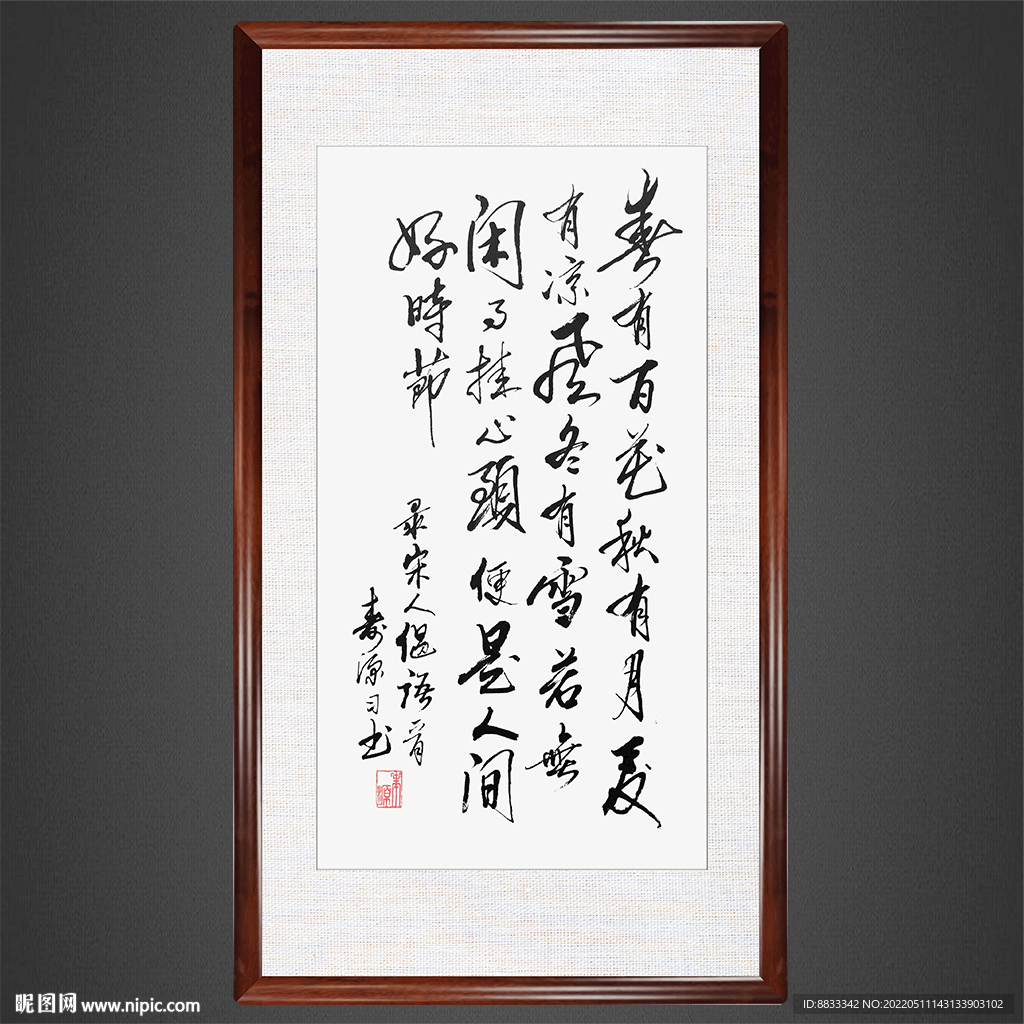 春有百花秋有月夏
有凉風冬有雪若無
闲事挂心頭便是人间
好時節
录宋人偈语
寿源习书
昵图网 www.nipic.com
ID:8833342 NO:20220511143133903102